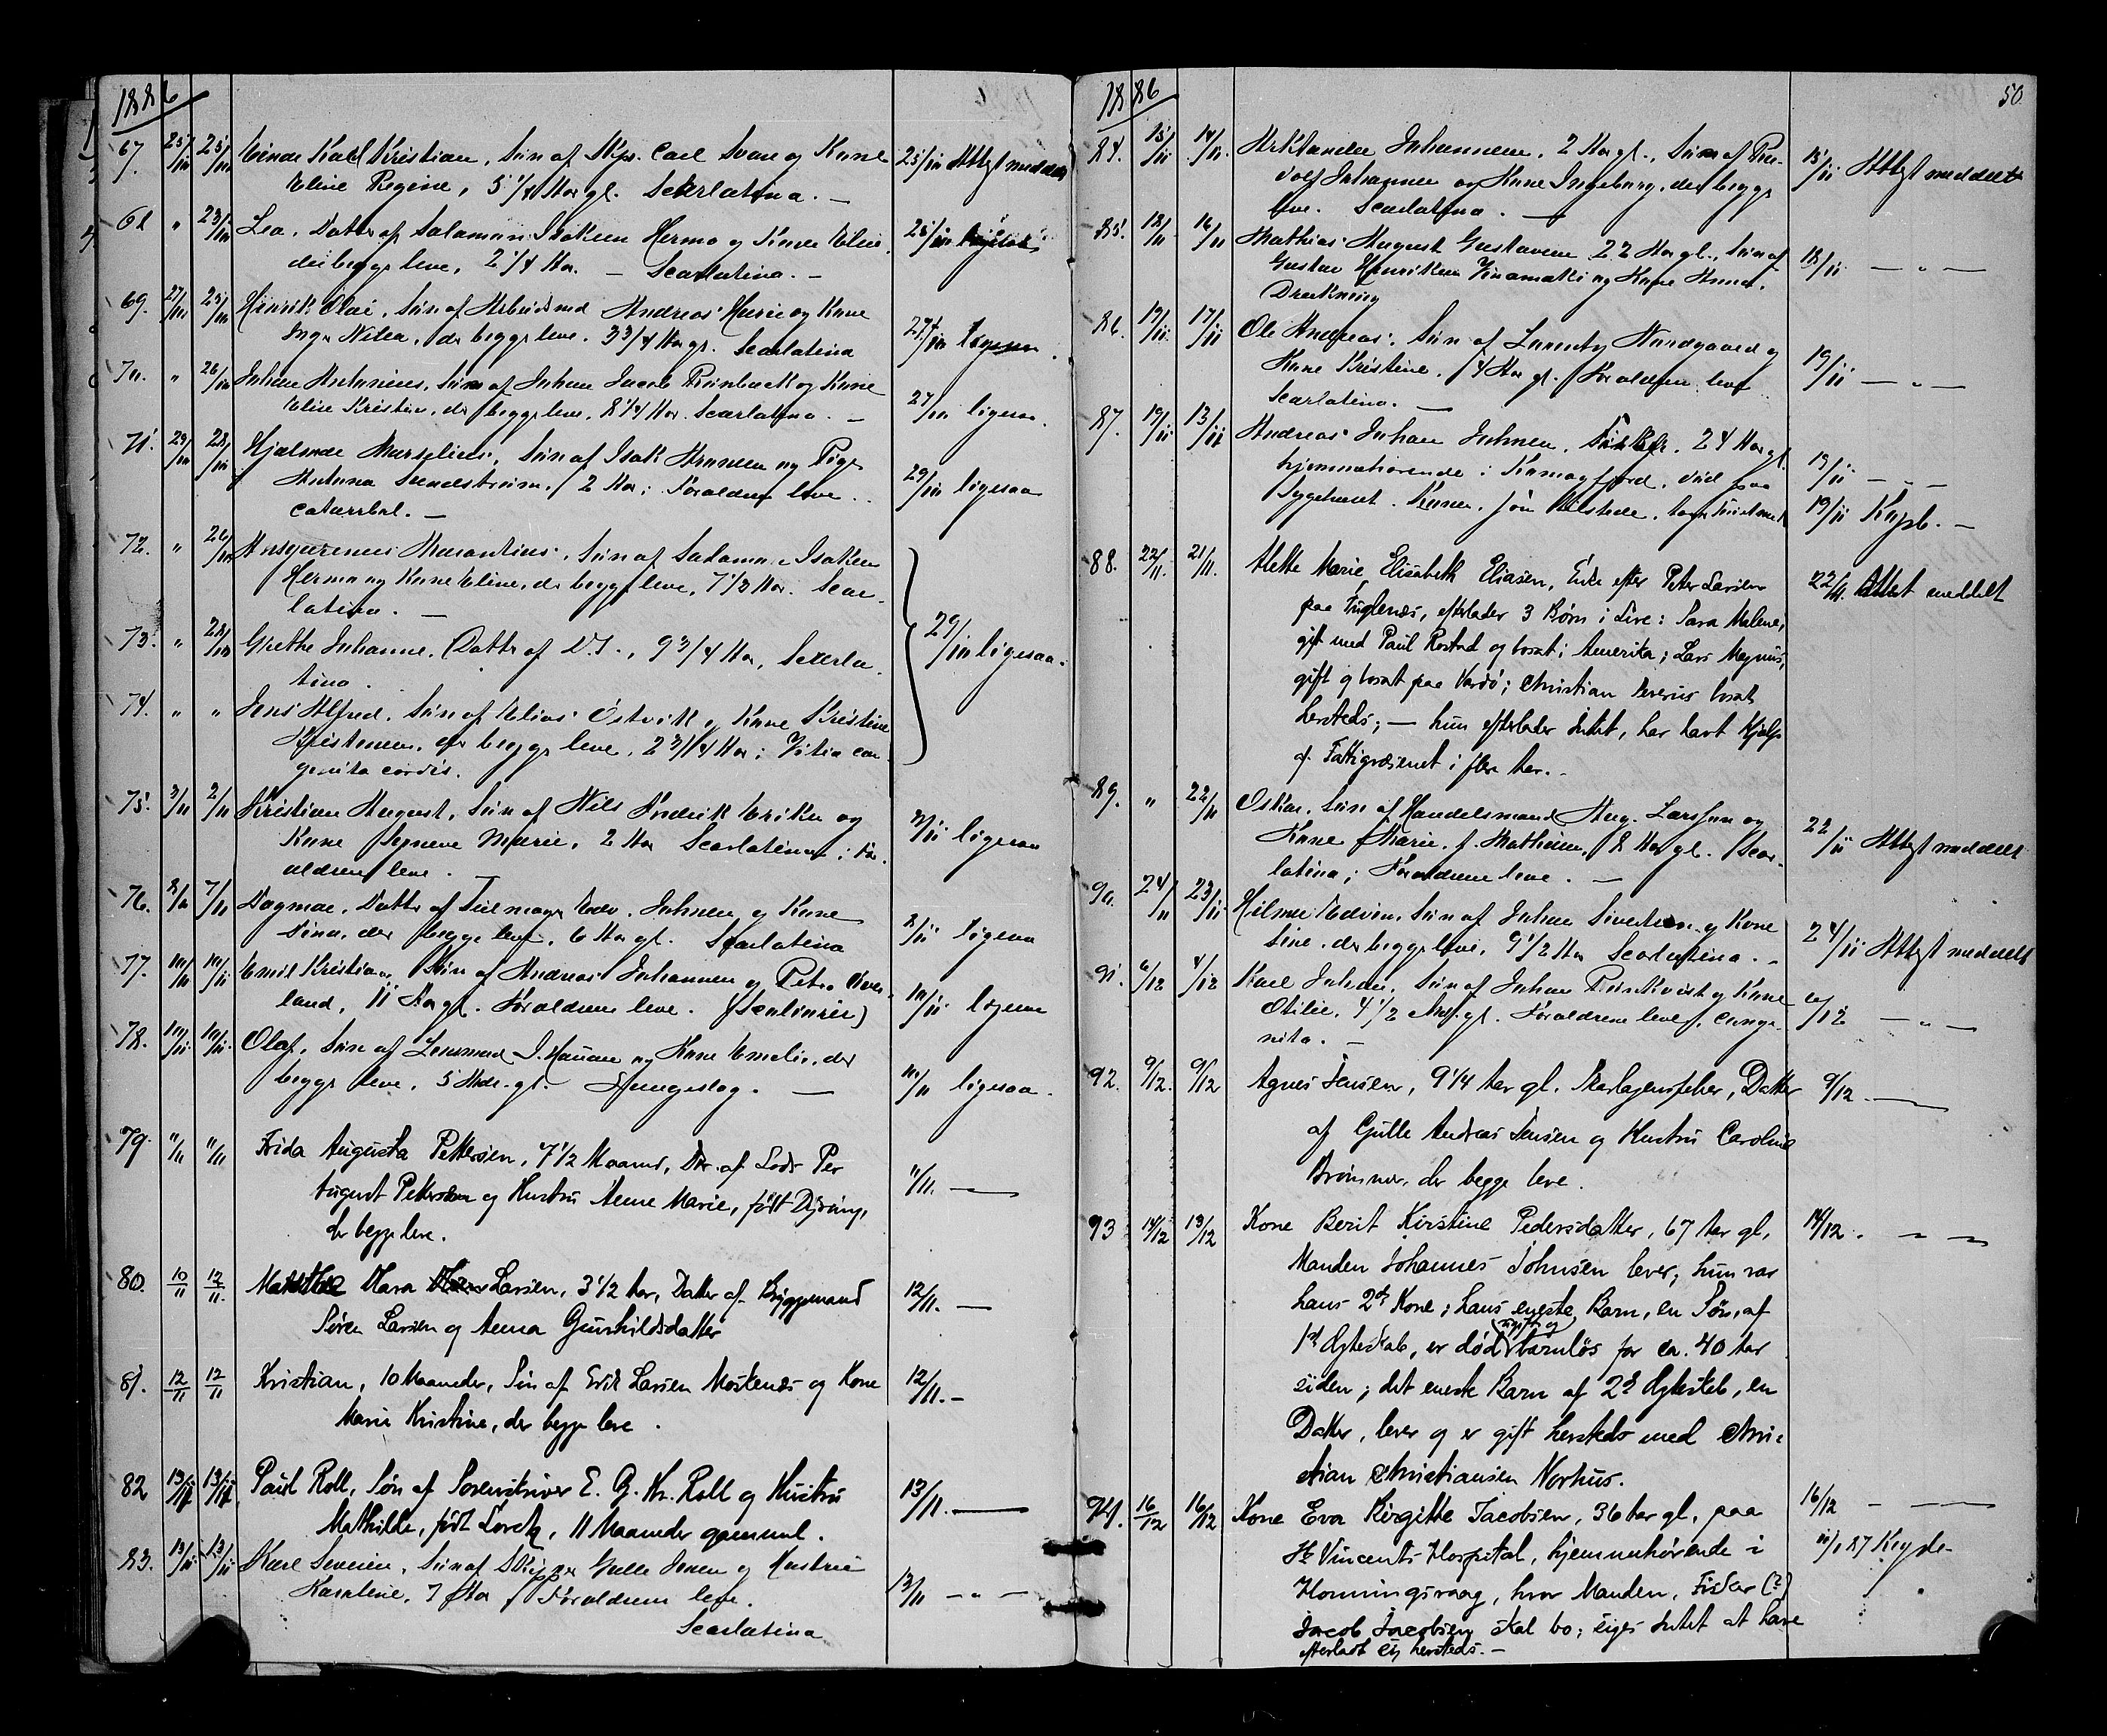 1886
67. 25/10 25/10 Einar Karl Kristian, Søn af Skps. Carl Svane og Kone 25/10 Attest meddelt
Eline Regine, 5 1/4 Aar gl. Scarlatina. —
68 " 23/10 Lea, Datter af Salamon Isaksen Hermo og Kone Eline 25/10 ligesaa
der begge leve, 2 1/4 Aar. — Scarlatina. —
69. 27/10 25/10 Henrik Olai, Søn af Arbeidsmd Andreas og Kone
Inga, der begge leve. 3 3/4 Aar gl. Scarlatina 27/10 ligesaa.
70. " 26/10 Johan Antonius, Søn af Johan Jacob og Kone
Elise Kristine, der begge leve, 8 1/4 Aar. Scarlatina. — 27/10 ligesaa.
71. 29/10 28/10 Hjalmar Marselius, Søn af Isak Hansen og Pige
Antona Sundstrøm, 2 Aar; Forældrene leve. 29/10 ligesaa
catarrhal. —
72. " 26/10 Ansgarius, Søn af Salamon Isaksen
Hermo og Kone Eline, der begge leve, 7 1/2 Aar. Scar-
latina. —
73. " 28/10 Grethe Johanne, Datter af D.S., 9 3/4 Aar, Scarla- 29/10 ligesaa.
tina.
74. " " Jens Alfred, Søn af Elias Østvik og Kone Kristine
Kristensen, der begge leve, 2 3/4 Aar; Vitia con-
genita cordis.
75. 3/11 2/11 Kristian August, Søn af Nils Fredrik Eriksen og
Kone Marie, 2 Aar Scarlatina; For- 3/11 ligesaa
ældrene leve. —
76. 8/11 7/11 Dagmar, Datter af Edv. Johnsen og Kone
Dina, der begge leve, 6 Aar gl. Scarlatina 8/11 ligesaa
77. 10/11 10/11 Emil Kristian, Søn af Andreas Johannesen og Petra
land, 11 Aar gl. Forældrene leve. 10/11 ligesaa
78. 10/11 10/11 Olaf, Søn af Lensmand J. og Kone Emelie, der
begge leve, 5 Mdr. gl. —— 10/11 ligesaa.
79. 11/11 11/11 Frida Augusta Pettersen, 7 1/2 Maaned, Dtr. af Lods Per
August Pettersen og Hustru Anne Marie, født, 11/11. —
der begge leve.
80. 10/11 12/11 Mathilde Klara Larsen, 3 1/2 Aar, Datter af Bryggemand 12/11. —
Søren Larsen og Anna Gunhildsdatter
81. 12/11 12/11 Kristian, 10 Maaneder, Søn af Erik Larsen Moskenes og Kone 12/11. —
Marie Kristine, der begge leve.
82 13/11 13/11 Paul Roll, Søn af Sorenskriver E. G. Kr. Roll og Hustru 13/11. —
Mathilde, født Loretz, 11 Maaneder gammel.
83. 13/11 13/11 Karl Severin, Søn af Skipper Gulle Jensen og Hustru
Karoline, 7 Aar, Forældrene leve. 13/11 — " —
Scarlatina
1886 50
84. 15/11 14/11 Johannesen, 2 Aar gl., Søn af 15/11 Attest meddelt
Johannesen og Kone Ingeborg, der begge
leve. Scarlatina. —
85. 18/11 16/11 Mathias August Gustavsen 22 Aar gl., Søn af 18/11 — " —
Gustav Henriksen og Kone Anna.
Drukning
86. 19/11 17/11 Ole Andreas, Søn af Nordgaard og
Kone Kristine, 4 Aar gl. Forældrene leve 19/11 — " —
Scarlatina. —
87. 19/11 13/11 Andreas Johan Johnsen, Fisker, 24 Aar gl.
hjemmehørende i Kamøyfjord, død paa 19/11 — " —
Sygehuset. 19/11 Kopb. —
88. 22/11. 21/11. Alette Marie Elisabeth Eliasen, Enke efter Peter Larsen 22/11. Attest meddelt
paa Fuglenes, efterlader 3 Børn i Live: Sara Malene,
gift med Paul Rostad og bosat i Amerika; Lars Magnus,
gift og bosat paa Vardø; Christian Severus bosat
hersteds; — hun efterlader Intet, har havt Hjælp
af Fattigvæsenet i flere Aar. —
89. " 22/11 Oskar, Søn af Handelsmand Aug. Larssen og 22/11 Attest meddelt
Kone Marie, f. Mathisen, 8 Aar gl. Scar-
latina; Forældrene leve. —
90. 24/11 23/11 Hilmar Edvin, Søn af Johan Sivertsen og Kone 24/11 Attest meddelt
Sine, der begge leve, 9 1/2 Aar Scarlatina. —
91. 6/12 4/12 Karl Johan, Søn af Johan Rönkvist og Kone 6/12 — " —
Otilie, 4 1/2 Mdr. gl. Forældrene leve, conge-
nita. —
92. 9/12. 9/12 Agnes Jensen, 9 1/4 Aar gl. Skarlagensfeber, Datter 9/12. —
af Gulle Andreas Jensen og Hustru Caroline
Brønner, der begge leve.
93 14/12 13/12 Kone Berit Kirstine Pedersdatter, 67 Aar gl, 14/12. — —
Manden Johannes Johnsen lever; hun var
hans 2d Kone; hans eneste Barn, en Søn, af
1st Ægteskab, er død (ugift og) barnløs for ca. 40 Aar
siden; det eneste Barn af 2d Ægteskab, en
Datter, lever og er gift hersteds med Chri-
stian Christiansen Norhus.
94. 16/12 16/12 Kone Eva Birgitte Jacobsen, 36 Aar gl, paa 16/12 — —
St Vincents Hospital, hjemmehørende i
Honningsvaag, hvor Manden, Fisker (?)
Jacob Jacobsen skal bo; siges Intet at have
efterladt sig hersteds. —